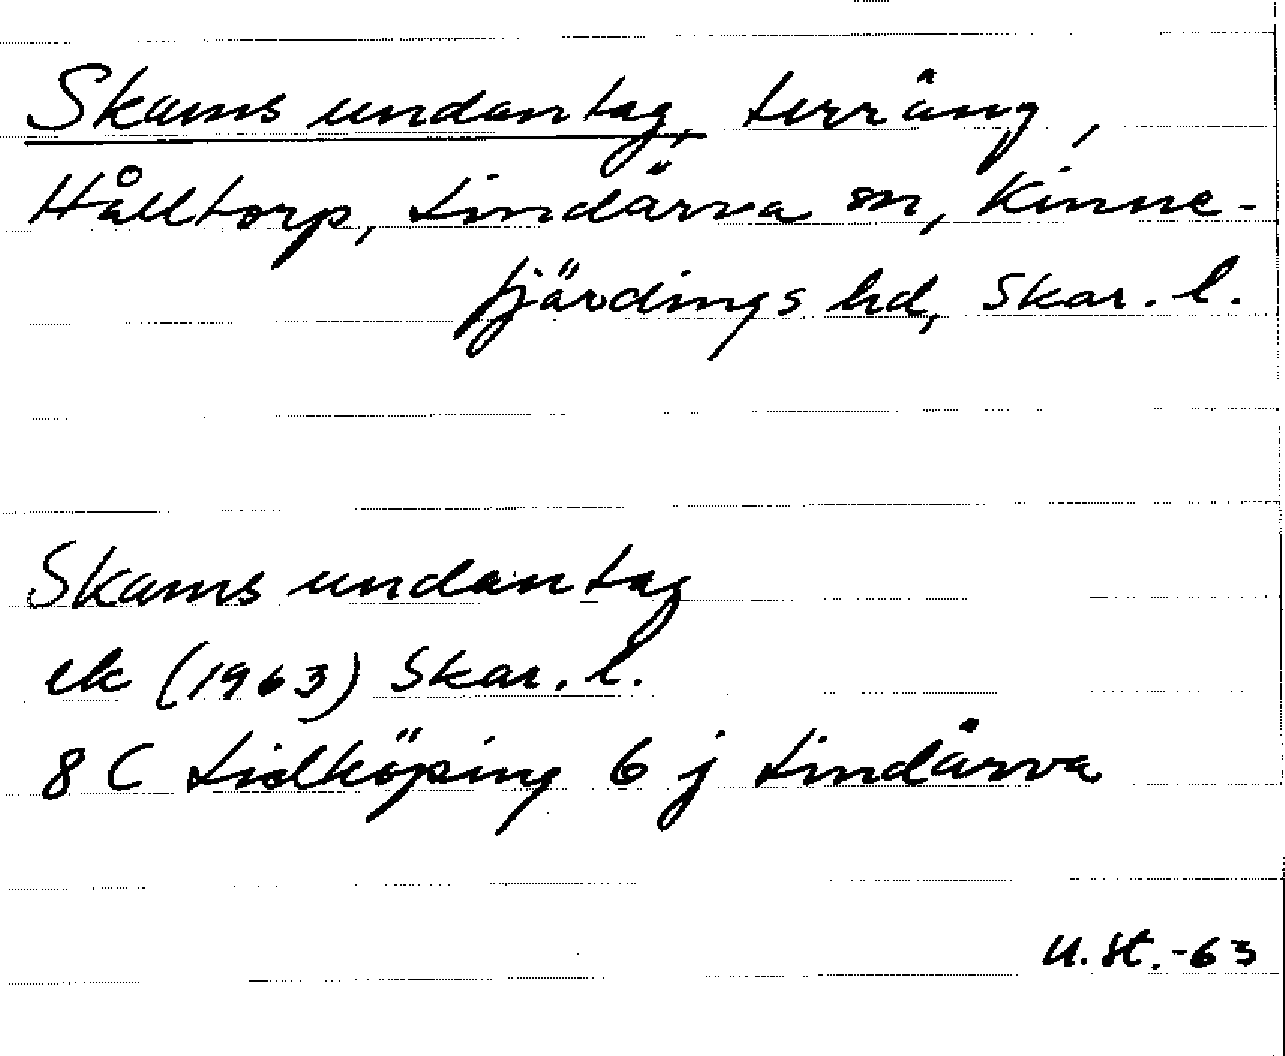 Skams undantag, terräng,
Hålltorp, Lindärva sn, Kinne-
fjärdings hd, Skar. l.
Skams undantag
ek (1963) Skar. l.
8 C Lidköping 6 j Lindärva
U. St. -63